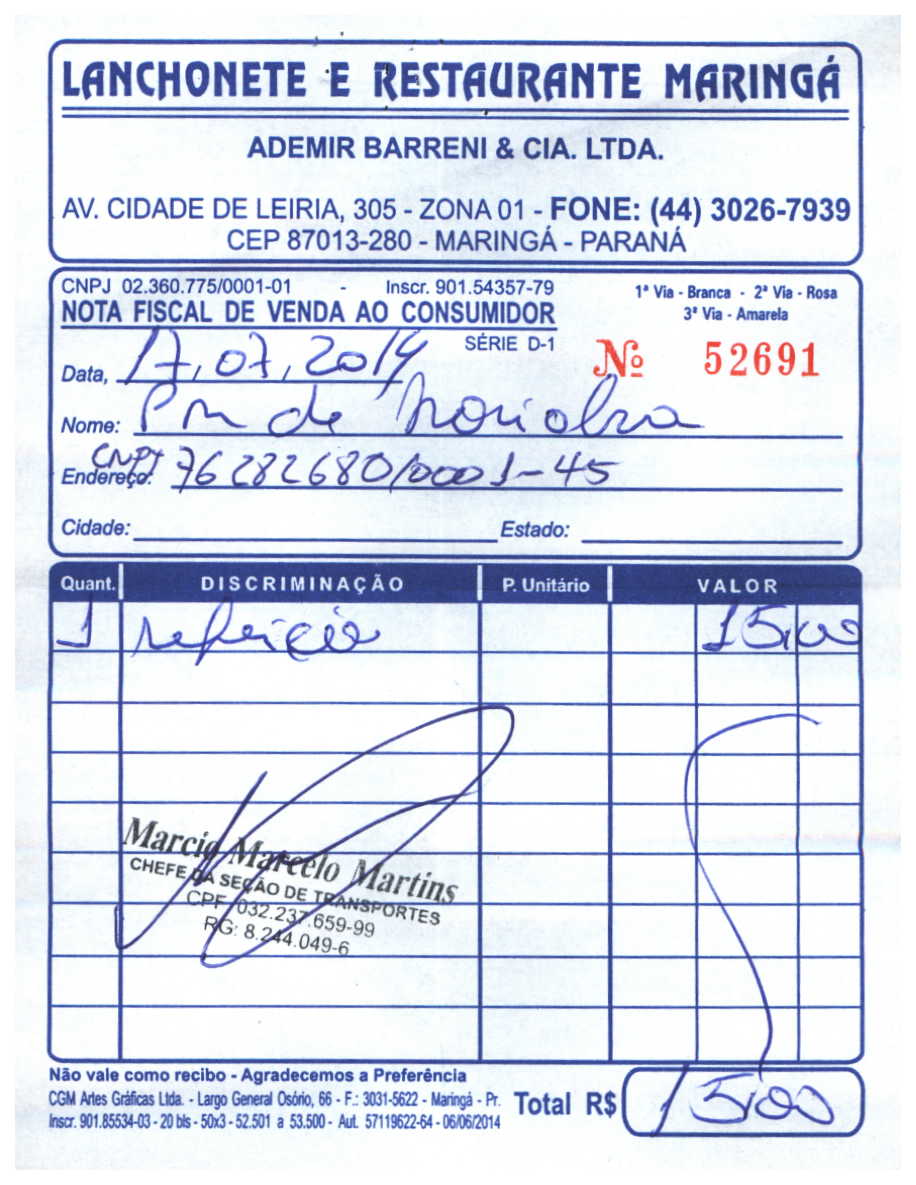 LANCHONETE E RESTAURANTE MARINGÁ
ADEMIR BARRENI & CIA. LTDA.
AV. CIDADE DE LEIRIA, 305 - ZONA 01 - FONE: (44) 3026-7939
CEP 87013-280 - MARINGÁ - PARANÁ
CNPJ 02.360.775/0001-01 - Inscr. 901.54357-79
1ª Via - Branca - 2ª Via - Rosa
3ª Via - Amarela
NOTA FISCAL DE VENDA AO CONSUMIDOR
SÉRIE D-1
Nº 52691
Data, 17, 07, 2014
Nome: Pm de
CNPJ
Endereço: 76282680/0001-45
Cidade: Estado:
Quant. DISCRIMINAÇÃO P. Unitário VALOR
1 refeição 15,00
Marcio Marcelo Martins
CHEFE DA SEÇÃO DE TRANSPORTES
CPF: 032.237.659-99
RG: 8.244.049-6
Não vale como recibo - Agradecemos a Preferência
CGM Artes Gráficas Ltda. - Largo General Osório, 66 - F.: 3031-5622 - Maringá - Pr.
Inscr. 901.85534-03 - 20 bls - 50x3 - 52.501 a 53.500 - Aut. 57119622-64 - 06/06/2014
Total R$ 15,00